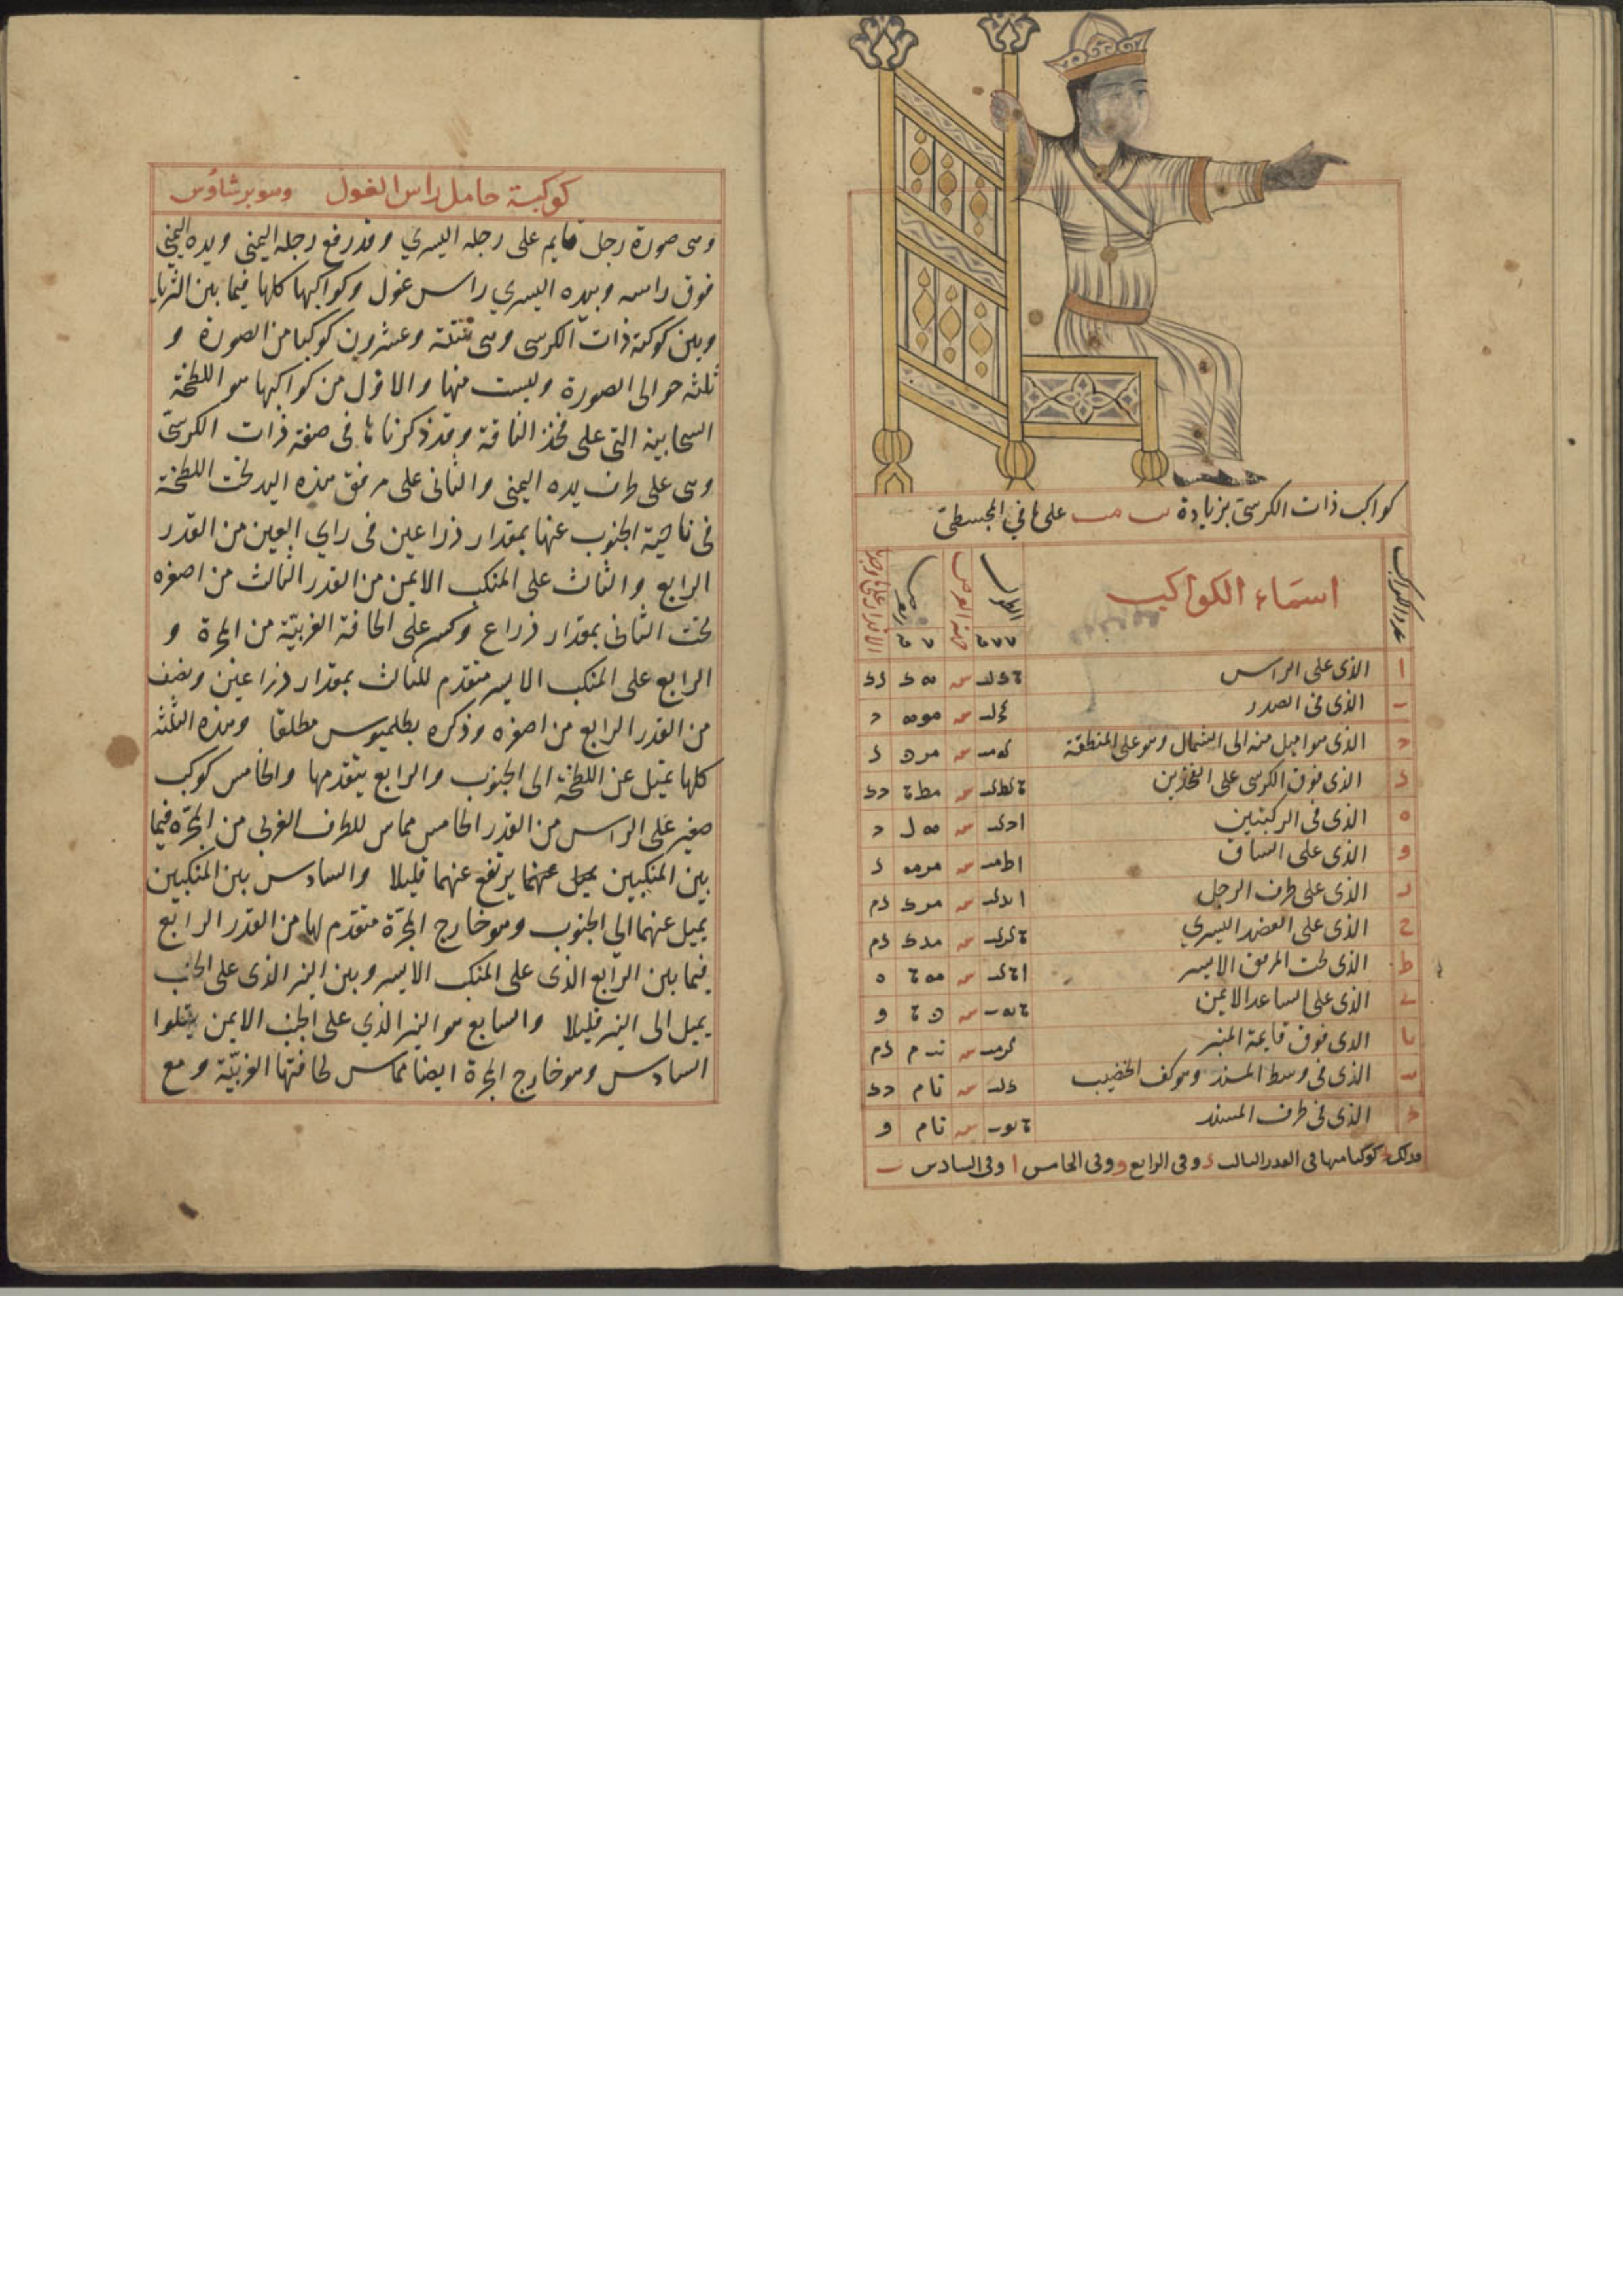 كواكب ذات الكرسي بزيادة ىب مب على ما في المجسطي
عدد الكواكب
اسماء الكواكب
الطول
جهة العرض
العرض
ا الذى على الراس
ب الذى فى الصدر
ج الذى هو اميل منه الى الشمال وهو على المنطقة
د الذى فوق الكرسى على الفخذين
ه الذى فى الركبتين
و الذى على الساق
ز الذى على طرف الرجل
ح الذى على العضد اليسري
ط الذى تحت المرفق الايسر
ى الذى على الساعد الايمن
يا الذى فوق قايمة المنبر
يب الذى فى وسط المسند وهو كف الخضيب
يج الذى فى طرف المسند
فذلك يج كوكبا منها فى القدر الثالث د وفى الرابع و وفى الخامس ا وفى السادس ب
كوكبة حامل راس الغول وهو برشاوس
وهى صورة رجل قايم على رجله اليسري وقد رفع رجله اليمنى ويده اليمنى
فوق راسه وبيده اليسري راس غول وكواكبها كلها فيما بين الثريا
وبين كوكبة ذات الكرسى وهى ستة وعشرون كوكبا من الصورة و
ثلثه حوالى الصورة وليست منها والاول من كواكبها هو اللطخة
السحابية التى على فخذ الناقة وقد ذكرناها فى صفة ذات الكرسى
وهى على طرف يده اليمنى والثانى على مرفق هذه اليد تحت اللطخة
فى ناحية الجنوب عنها بمقدار ذراعين فى راي العين من القدر
الرابع والثالث على المنكب الايمن من القدر الثالث من اصغره
تحت الثانى بمقدار ذراع وكسر على الحافة الغربيّة من المجرة و
الرابع على المنكب الايسر متقدم للثالث بمقدار ذراعين ونصف
من القدر الرابع من اصغره وذكره بطلميوس مطلقا وهذه الثلثه
كلها تميل عن اللطخة الى الجنوب والرابع يتقدمها والخامس كوكب
صغير على الراس من القدر الخامس مماس للطرف الغربى من المجرّه فيما
بين المنكبين يميل عنهما يرتفع عنهما قليلا والسادس بين المنكبين
يميل عنهما الي الجنوب وهو خارج المجرّة متقدم لها من القدر الرابع
فيما بين الرابع الذى على المنكب الايسر وبين النير الذى على الجنب
يميل الى النير قليلا والسابع هو النير الذي على الجنب الايمن يتلوا
السادس وهو خارج المجرة ايضا مماس لحافتها الغربيّة ومع